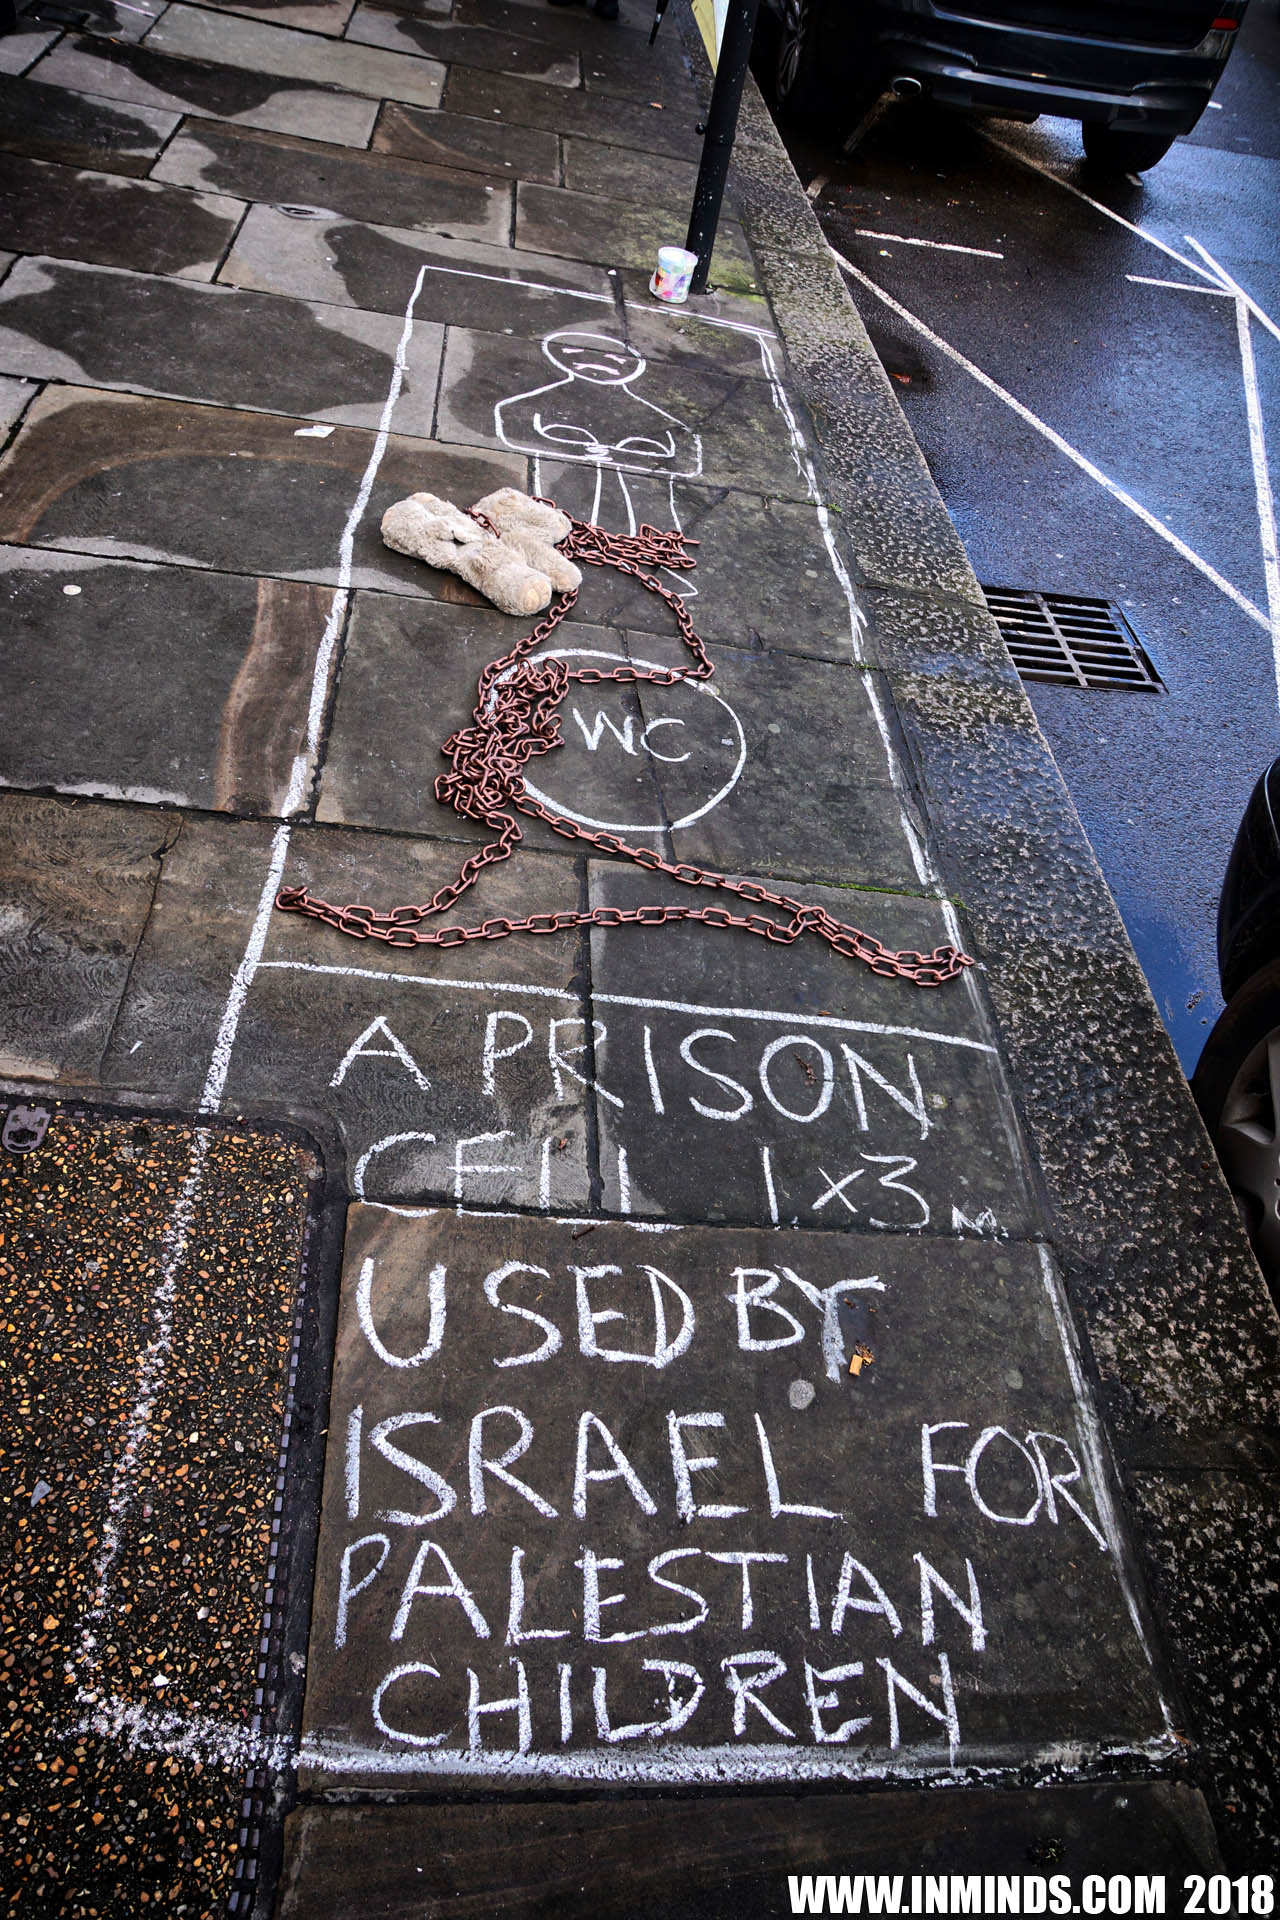 WC
A PRISON
CELL 1x3 M.
USED BY
ISRAEL FOR
PALESTIAN
CHILDREN
WWW.INMINDS.COM 2018